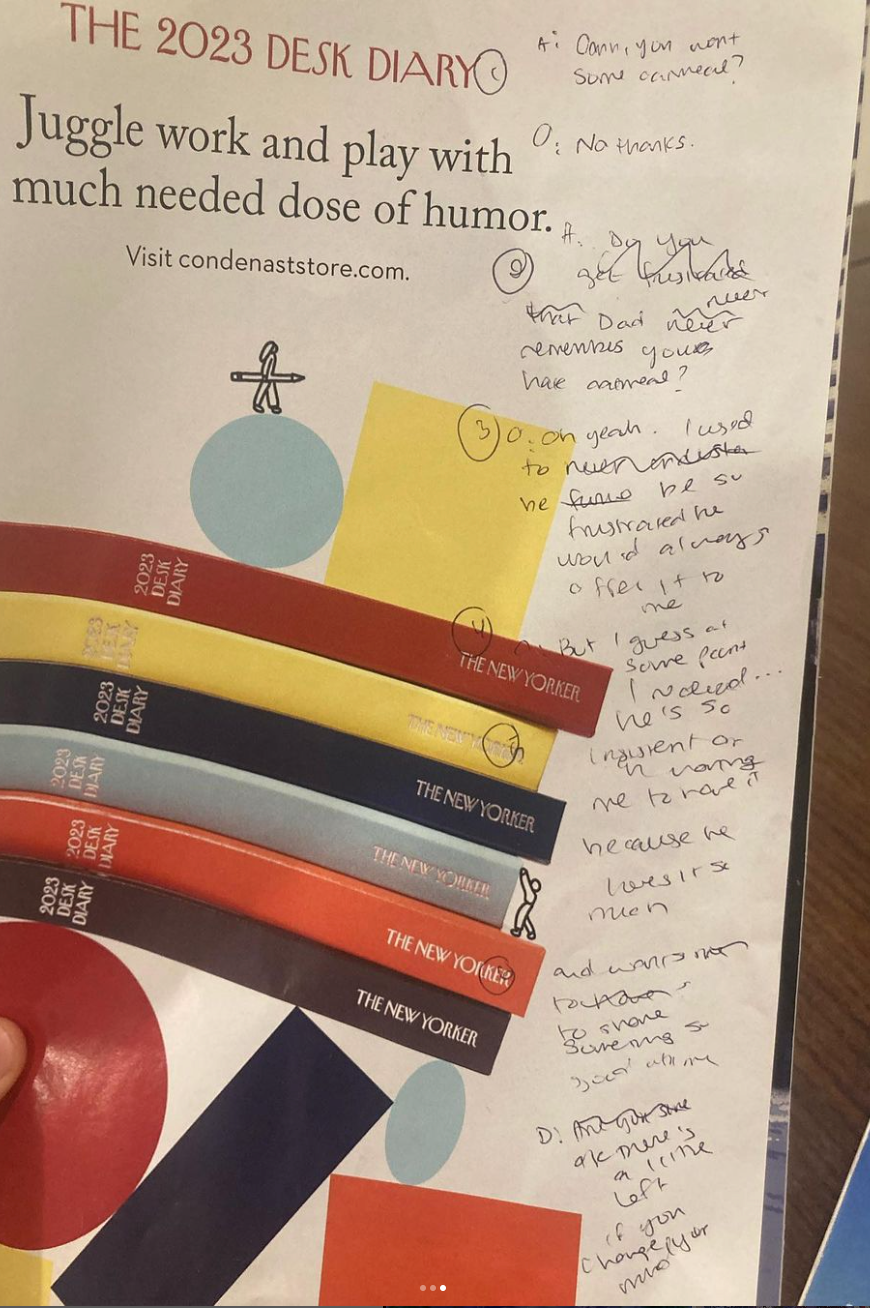 THE 2023 DESK DIARY
Juggle work and play with
much needed dose of humor.
Visit condenaststore.com.
2023
DESK
DIARY
THE NEW YORKER
2023
DESK
DIARY
THE NEW YORKER
2023
DESK
DIARY
THE NEW YORKER
2023
DESK
DIARY
THE NEW YORKER
2023
DESK
DIARY
THE NEW YORKER
2023
DESK
DIARY
THE NEW YORKER
you want
some oatmeal?
O: No thanks.
A. Do you
get frustrated
that Dad never never
remembers you
hate oatmeal?
3 O. Oh yeah. I used
to never
be so
frustrated he
would always
offer it to
me
4 But I guess at
some point
I noticed...
he's so
insistent
me to have it
because he
loves it so
much
and wants
to share
something so
good
D: 
ok there's
a little
left
if you
change your
mind